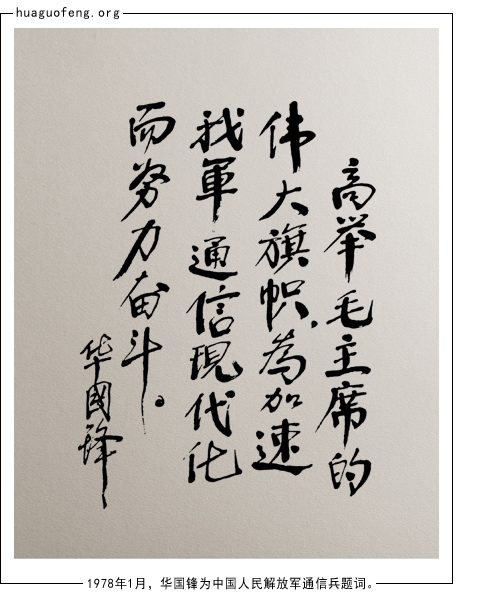 huaguofeng.org
高举毛主席的
伟大旗帜，為加速
我軍通信現代化
而努力奋斗。
华國锋
1978年1月，华国锋为中国人民解放军通信兵题词。